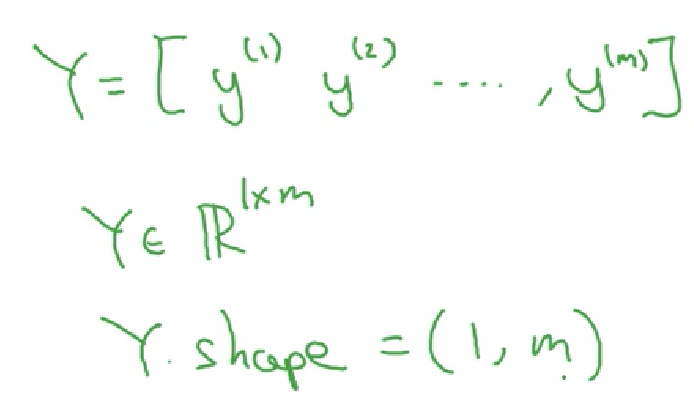 Y = [ y^(1) y^(2) ...., y^(m) ]
Y ∈ ℝ^(1×m)
Y.shape = (1, m)